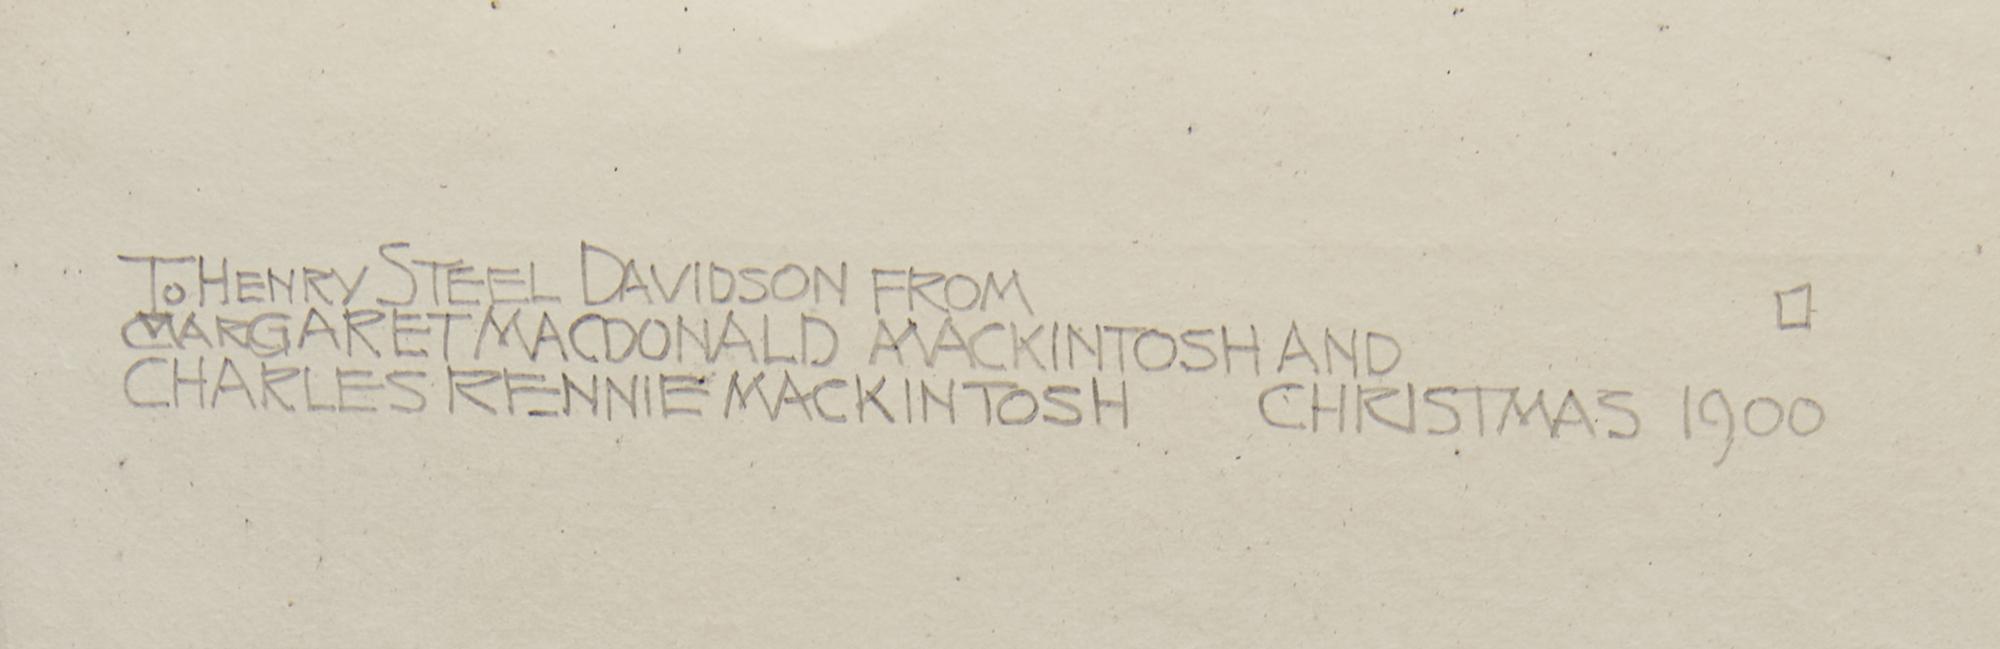 To HENRY STEEL DAVIDSON FROM
MARGARET MACDONALD MACKINTOSH AND
CHARLES RENNIE MACKINTOSH CHRISTMAS 1900